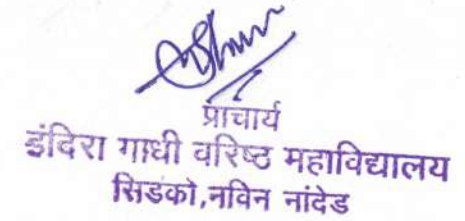 प्राचार्य
इंदिरा गाधी वरिष्ठ महाविद्यालय
सिडको,नविन नांदेड